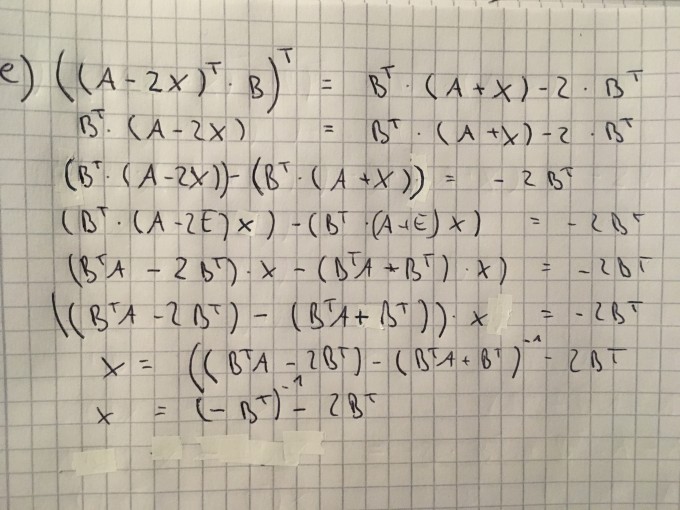 e) ((A - 2X)ᵀ · B)ᵀ = Bᵀ · (A + X) - 2 · Bᵀ
Bᵀ · (A - 2X) = Bᵀ · (A + X) - 2 · Bᵀ
(Bᵀ · (A - 2X)) - (Bᵀ · (A + X)) = - 2 Bᵀ
(Bᵀ · (A - 2E) x) - (Bᵀ · (A + E) x) = - 2 Bᵀ
(BᵀA - 2 Bᵀ) · x - (BᵀA + Bᵀ) · x) = - 2 Bᵀ
((BᵀA - 2 Bᵀ) - (BᵀA + Bᵀ)) · x = - 2 Bᵀ
x = ((BᵀA - 2Bᵀ) - (BᵀA + Bᵀ)⁻¹ - 2 Bᵀ
x = (- Bᵀ)⁻¹ - 2 Bᵀ